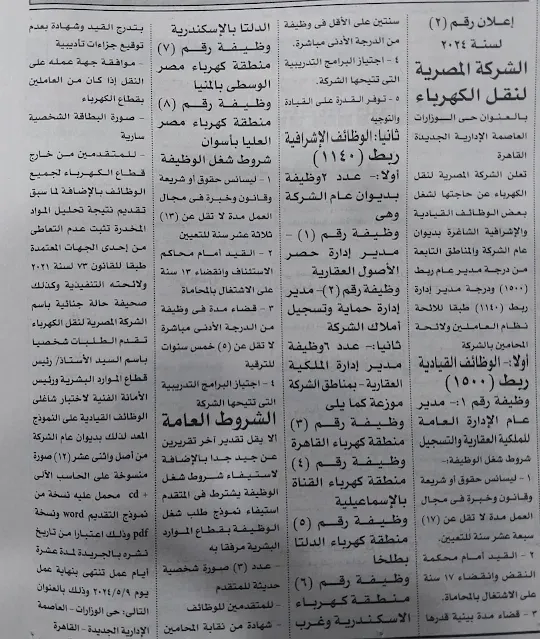 إعلان رقم (٢)
لسنة ٢٠٢٤
الشركة المصرية
لنقل الكهرباء
بالعنوان حى الوزارات
العاصمة الإدارية الجديدة
القاهرة
تعلن الشركة المصرية لنقل
الكهرباء عن حاجتها لشغل
بعض الوظائف القيادية
والإشرافية الشاغرة بديوان
عام الشركة والمناطق التابعة
من درجة مدير عام ربط
(١٥٠٠) ودرجة مدير إدارة
ربط (١١٤٠) طبقا للائحة
نظام العاملين ولائحة
المحامين بالشركة
أولا:- الوظائف القيادية
ربط (١٥٠٠)
وظيفة رقم ١:- مدير
عام الإدارة العامة
للملكية العقارية والتسجيل
شروط شغل الوظيفة:-
١ - ليسانس حقوق أو شريعة
وقانون وخبرة فى مجال
العمل مدة لا تقل عن (١٧)
سبعة عشر سنة للتعيين.
٢ - القيد أمام محكمة
النقض وانقضاء ١٧ سنة
على الاشتغال بالمحاماة.
٣ - قضاء مدة بينية قدرها
سنتين على الأقل فى وظيفة
من الدرجة الأدنى مباشرة.
٤ - اجتياز البرامج التدريبية
التى تتيحها الشركة.
٥ - توفر القدرة على القيادة
والتوجيه
ثانيا: الوظائف الإشرافية
ربط (١١٤٠)
أولا:- عدد ٢ وظيفة
بديوان عام الشركة
وهى
وظيفة رقم (١) -
مدير إدارة حصر
الأصول العقارية
وظيفة رقم (٢)- مدير
إدارة حماية وتسجيل
أملاك الشركة
ثانيا:- عدد ٦ وظيفة
مدير إدارة الملكية
العقارية - بمناطق الشركة
موزعة كما يلى
وظيفة رقم (٣)
منطقة كهرباء القاهرة
وظيفة رقم (٤)
منطقة كهرباء القناة
بالإسماعيلية
وظيفة رقم (٥)
منطقة كهرباء الدلتا
بطلخا
وظيفة رقم (٦)
منطقة كهرباء
الاسكندرية وغرب
الدلتا بالإسكندرية
وظيفة رقم (٧)
منطقة كهرباء مصر
الوسطى بالمنيا
وظيفة رقم (٨)
منطقة كهرباء مصر
العليا بأسوان
شروط شغل الوظيفة
١ - ليسانس حقوق أو شريعة
وقانون وخبرة فى مجال
العمل مدة لا تقل عن (١٣)
ثلاثة عشر سنة للتعيين
٢ - القيد أمام محاكم
الاستئناف وانقضاء ١٣ سنة
على الاشتغال بالمحاماة
٣ - قضاء مدة فى وظيفة
من الدرجة الأدنى مباشرة
لا تقل عن (٥) خمس سنوات
للترقية
٤ - اجتياز البرامج التدريبية
التى تتيحها الشركة
الشروط العامة
الا يقل تقدير اخر تقريرين
عن جيد جدا بالإضافة
لاستيفاء شروط شغل
الوظيفة يشترط فى المتقدم
استيفاء نموذج طلب شغل
الوظيفة بقطاع الموارد
البشرية مرفقا به
- عدد (٣) صورة شخصية
حديثة للمتقدم
- للمتقدمين للوظائف
- شهادة من نقابة المحامين
بتدرج القيد وشهادة بعدم
توقيع جزاءات تأديبية
- موافقة جهة عمله على
النقل إذا كان من العاملين
بقطاع الكهرباء
- صورة البطاقة الشخصية
سارية
- للمتقدمين من خارج
قطاع الكهرباء لجميع
الوظائف بالإضافة لما سبق
تقديم نتيجة تحليل المواد
المخدرة تثبت عدم التعاطى
من إحدى الجهات المعتمدة
طبقا للقانون ٧٣ لسنة ٢٠٢١
ولائحته التنفيذية وكذلك
صحيفة حالة جنائية باسم
الشركة المصرية لنقل الكهرباء
تقدم الطلبات شخصيا
باسم السيد الأستاذ/ رئيس
قطاع الموارد البشرية ورئيس
الأمانة الفنية لاختيار شاغلى
الوظائف القيادية على النموذج
المعد لذلك بديوان عام الشركة
من أصل واثنى عشر (١٢) صورة
منسوخة على الحاسب الآلى
+ cd محمل عليه نسخة من
نموذج التقديم word ونسخة
pdf وذلك اعتبارا من تاريخ
نشره بالجريدة لمدة عشرة
أيام عمل تنتهى بنهاية عمل
يوم ٢٠٢٤/٥/٩ وذلك بالعنوان
التالى: حى الوزارات - العاصمة
الإدارية الجديدة - القاهرة